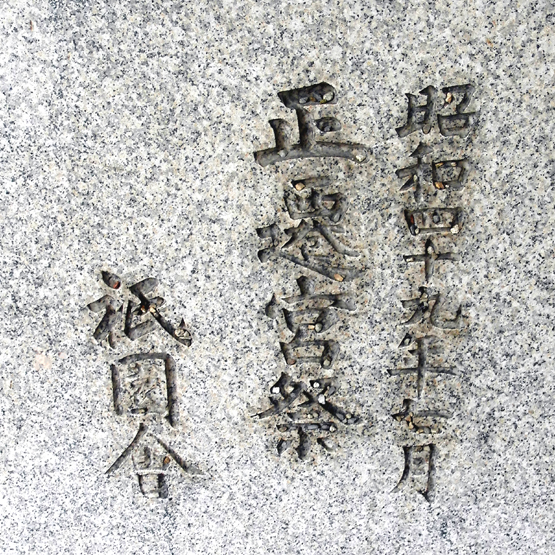 昭和四十九年七月
正遷宮祭
祇園會